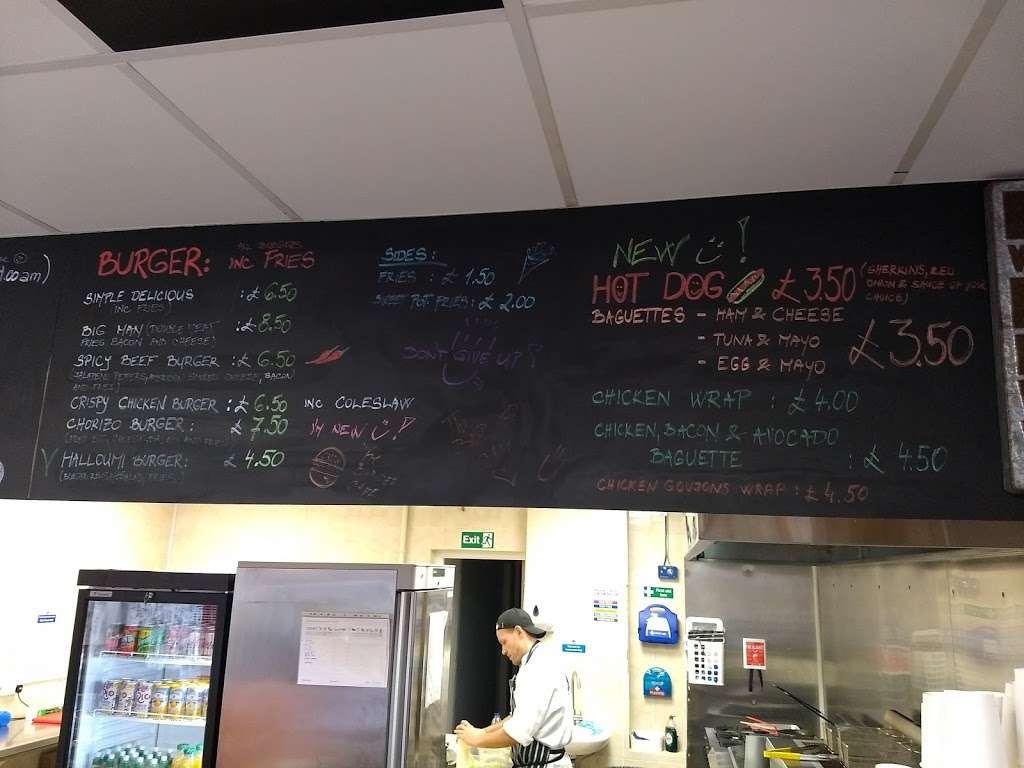 1.00am)
BURGER: ALL BURGERS
INC FRIES
SIMPLE DELICIOUS : £ 6.50
(INC FRIES)
BIG MAN (DOUBLE BEEF : £ 8.50
FRIES, BACON AND CHEESE)
SPICY BEEF BURGER : £ 6.50
JALAPENO PEPPERS, SMOKED CHEESE, BACON
AND FRIES)
CRISPY CHICKEN BURGER : £ 6.50 INC COLESLAW
CHORIZO BURGER : £ 7.50 I'M NEW !
V HALLOUMI BURGER : £ 4.50
SIDES :
FRIES : £ 1.50
SWEET POT FRIES : £ 2.00
DON'T GIVE UP !
NEW !
HOT DOG £ 3.50 (GHERKINS, RED
ONION & SAUCE OF YOUR
CHOICE)
BAGUETTES - HAM & CHEESE
- TUNA & MAYO £3.50
- EGG & MAYO
CHICKEN WRAP : £ 4.00
CHICKEN, BACON & AVOCADO
BAGUETTE : £ 4.50
CHICKEN GOUJONS WRAP : £ 4.50
Exit